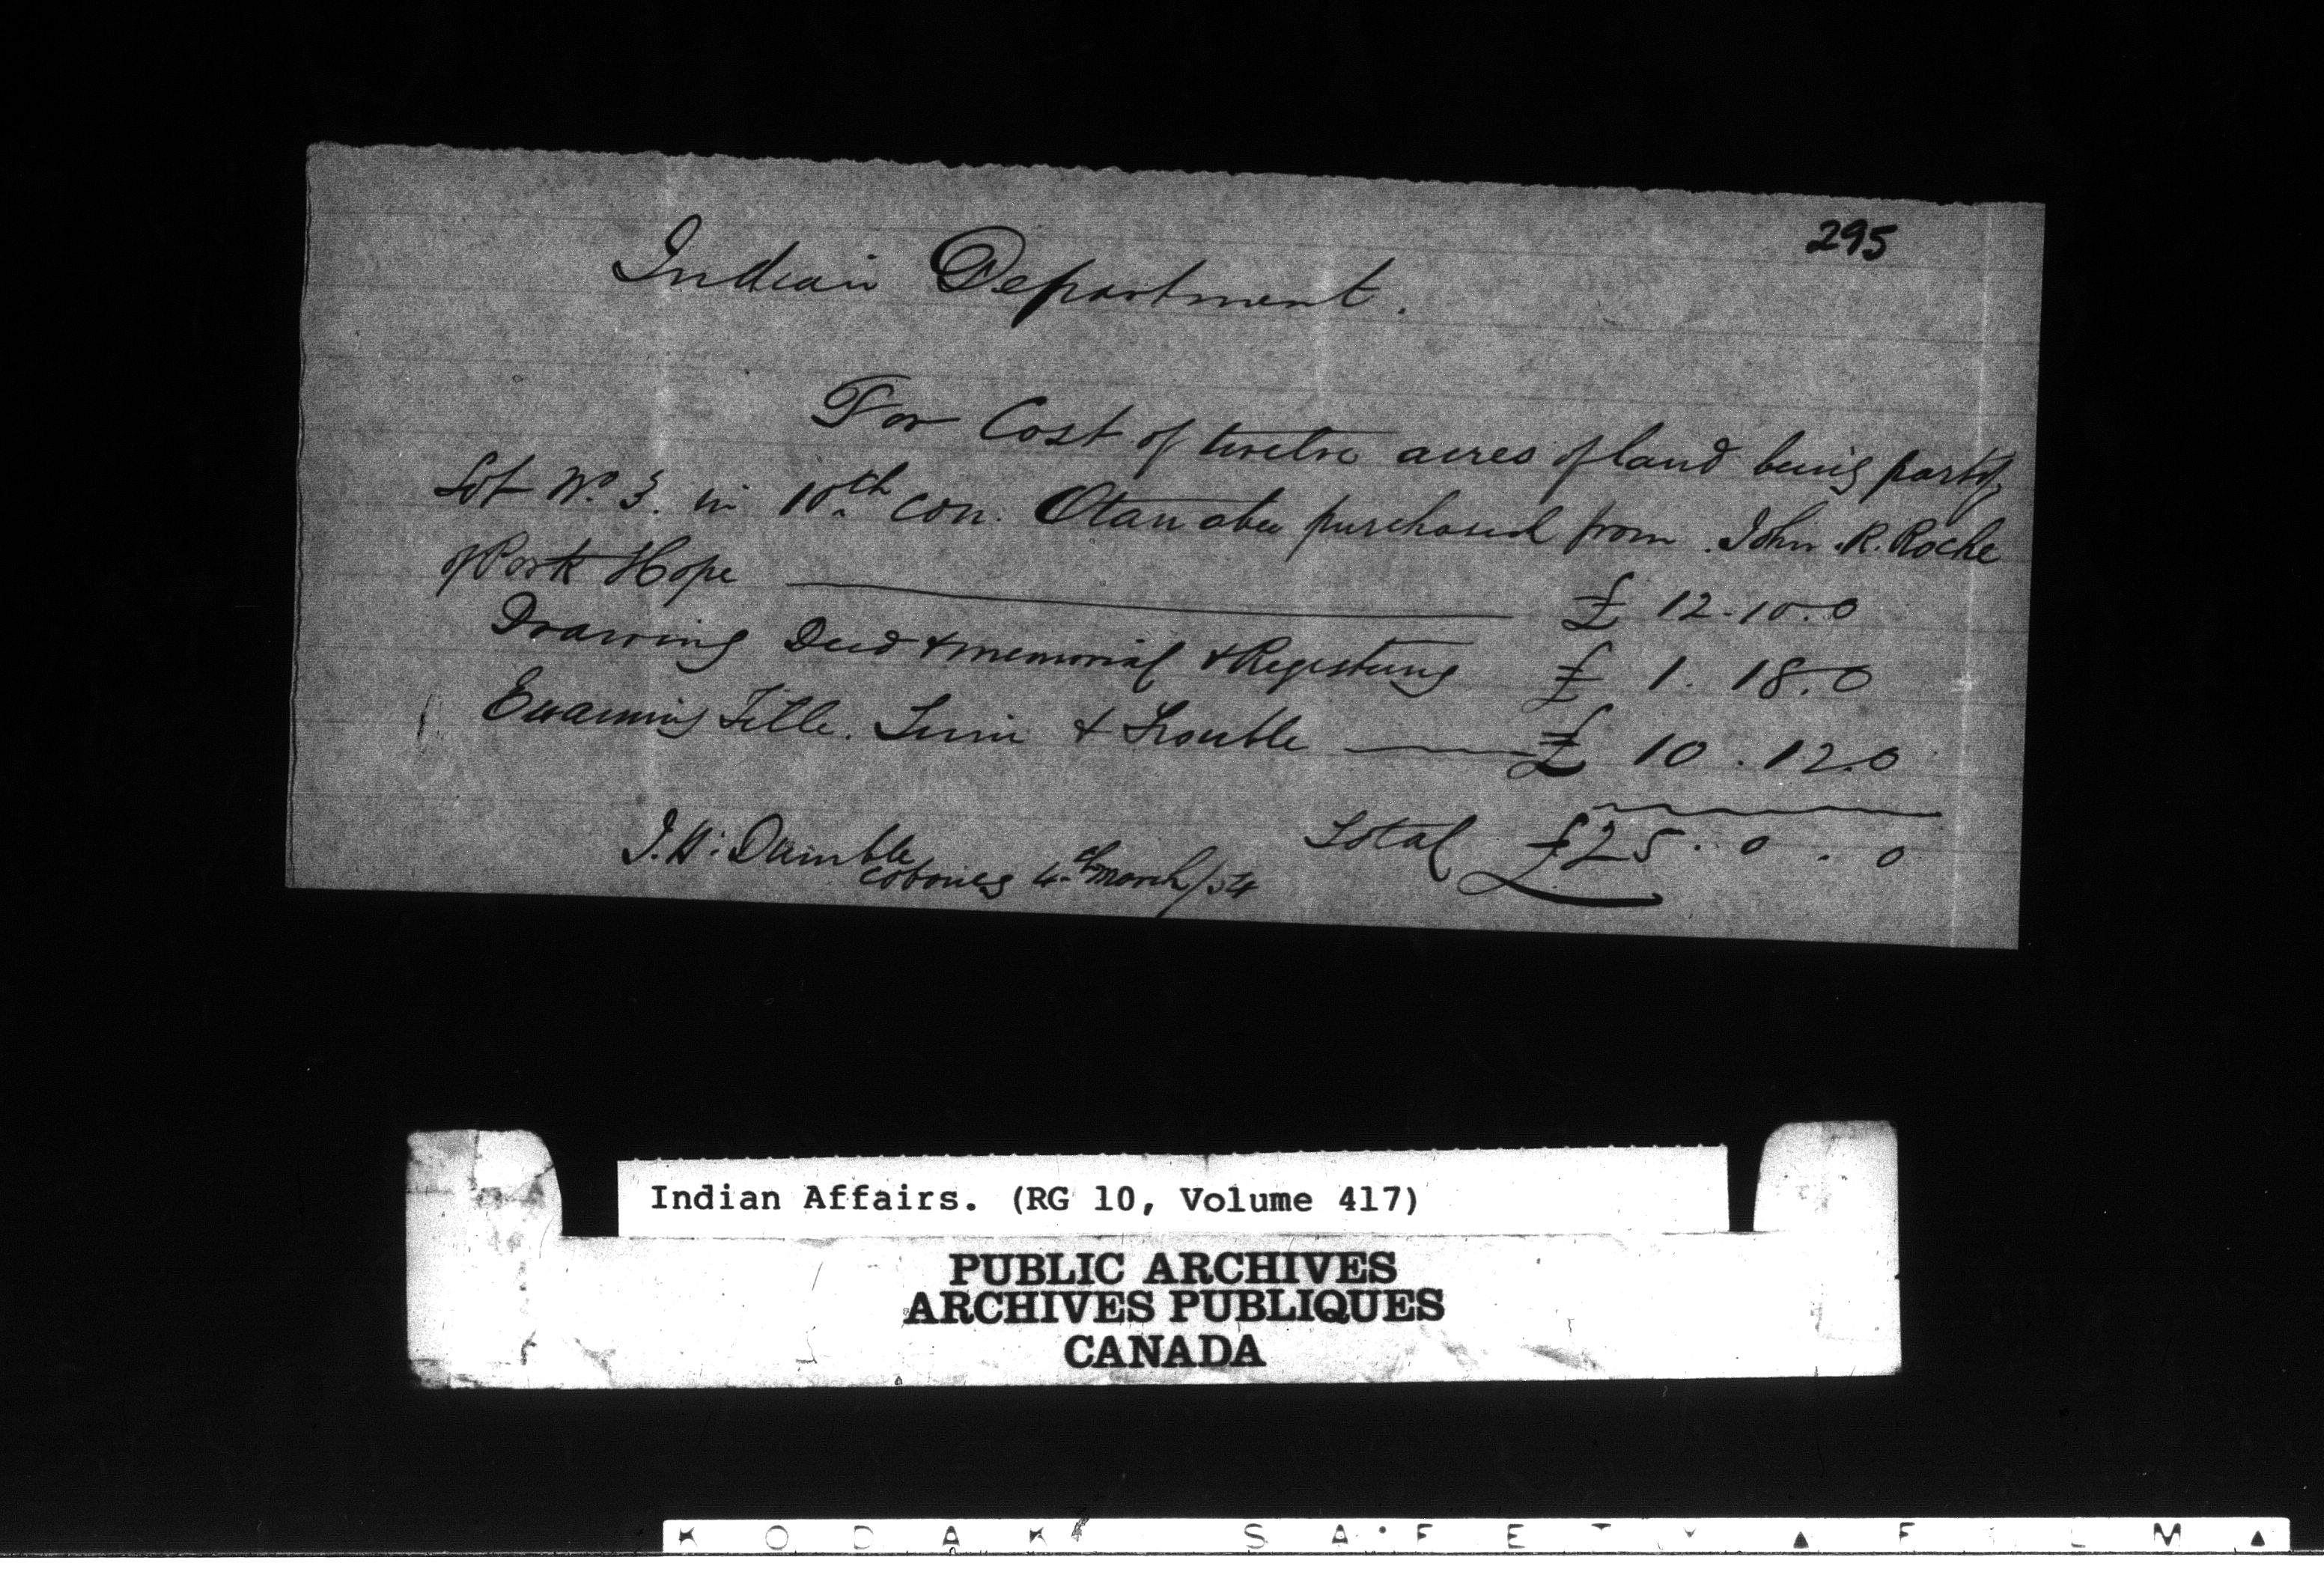 295
Indian Department.
For Cost of twelve acres of land being part of
Lot No. 3. in 10th Con. Otanabee purchased from John R. Roche
of Port Hope £ 12.10.0
Drawing Deed & memorial & Registering £ 1.18.0
Examining Title. Time & Trouble £ 10.12.0
Total £25.0.0
J.H: Dumble
Cobourg 4th March/54
Indian Affairs. (RG 10, Volume 417)
PUBLIC ARCHIVES
ARCHIVES PUBLIQUES
CANADA
KODAK SAFETY FILM